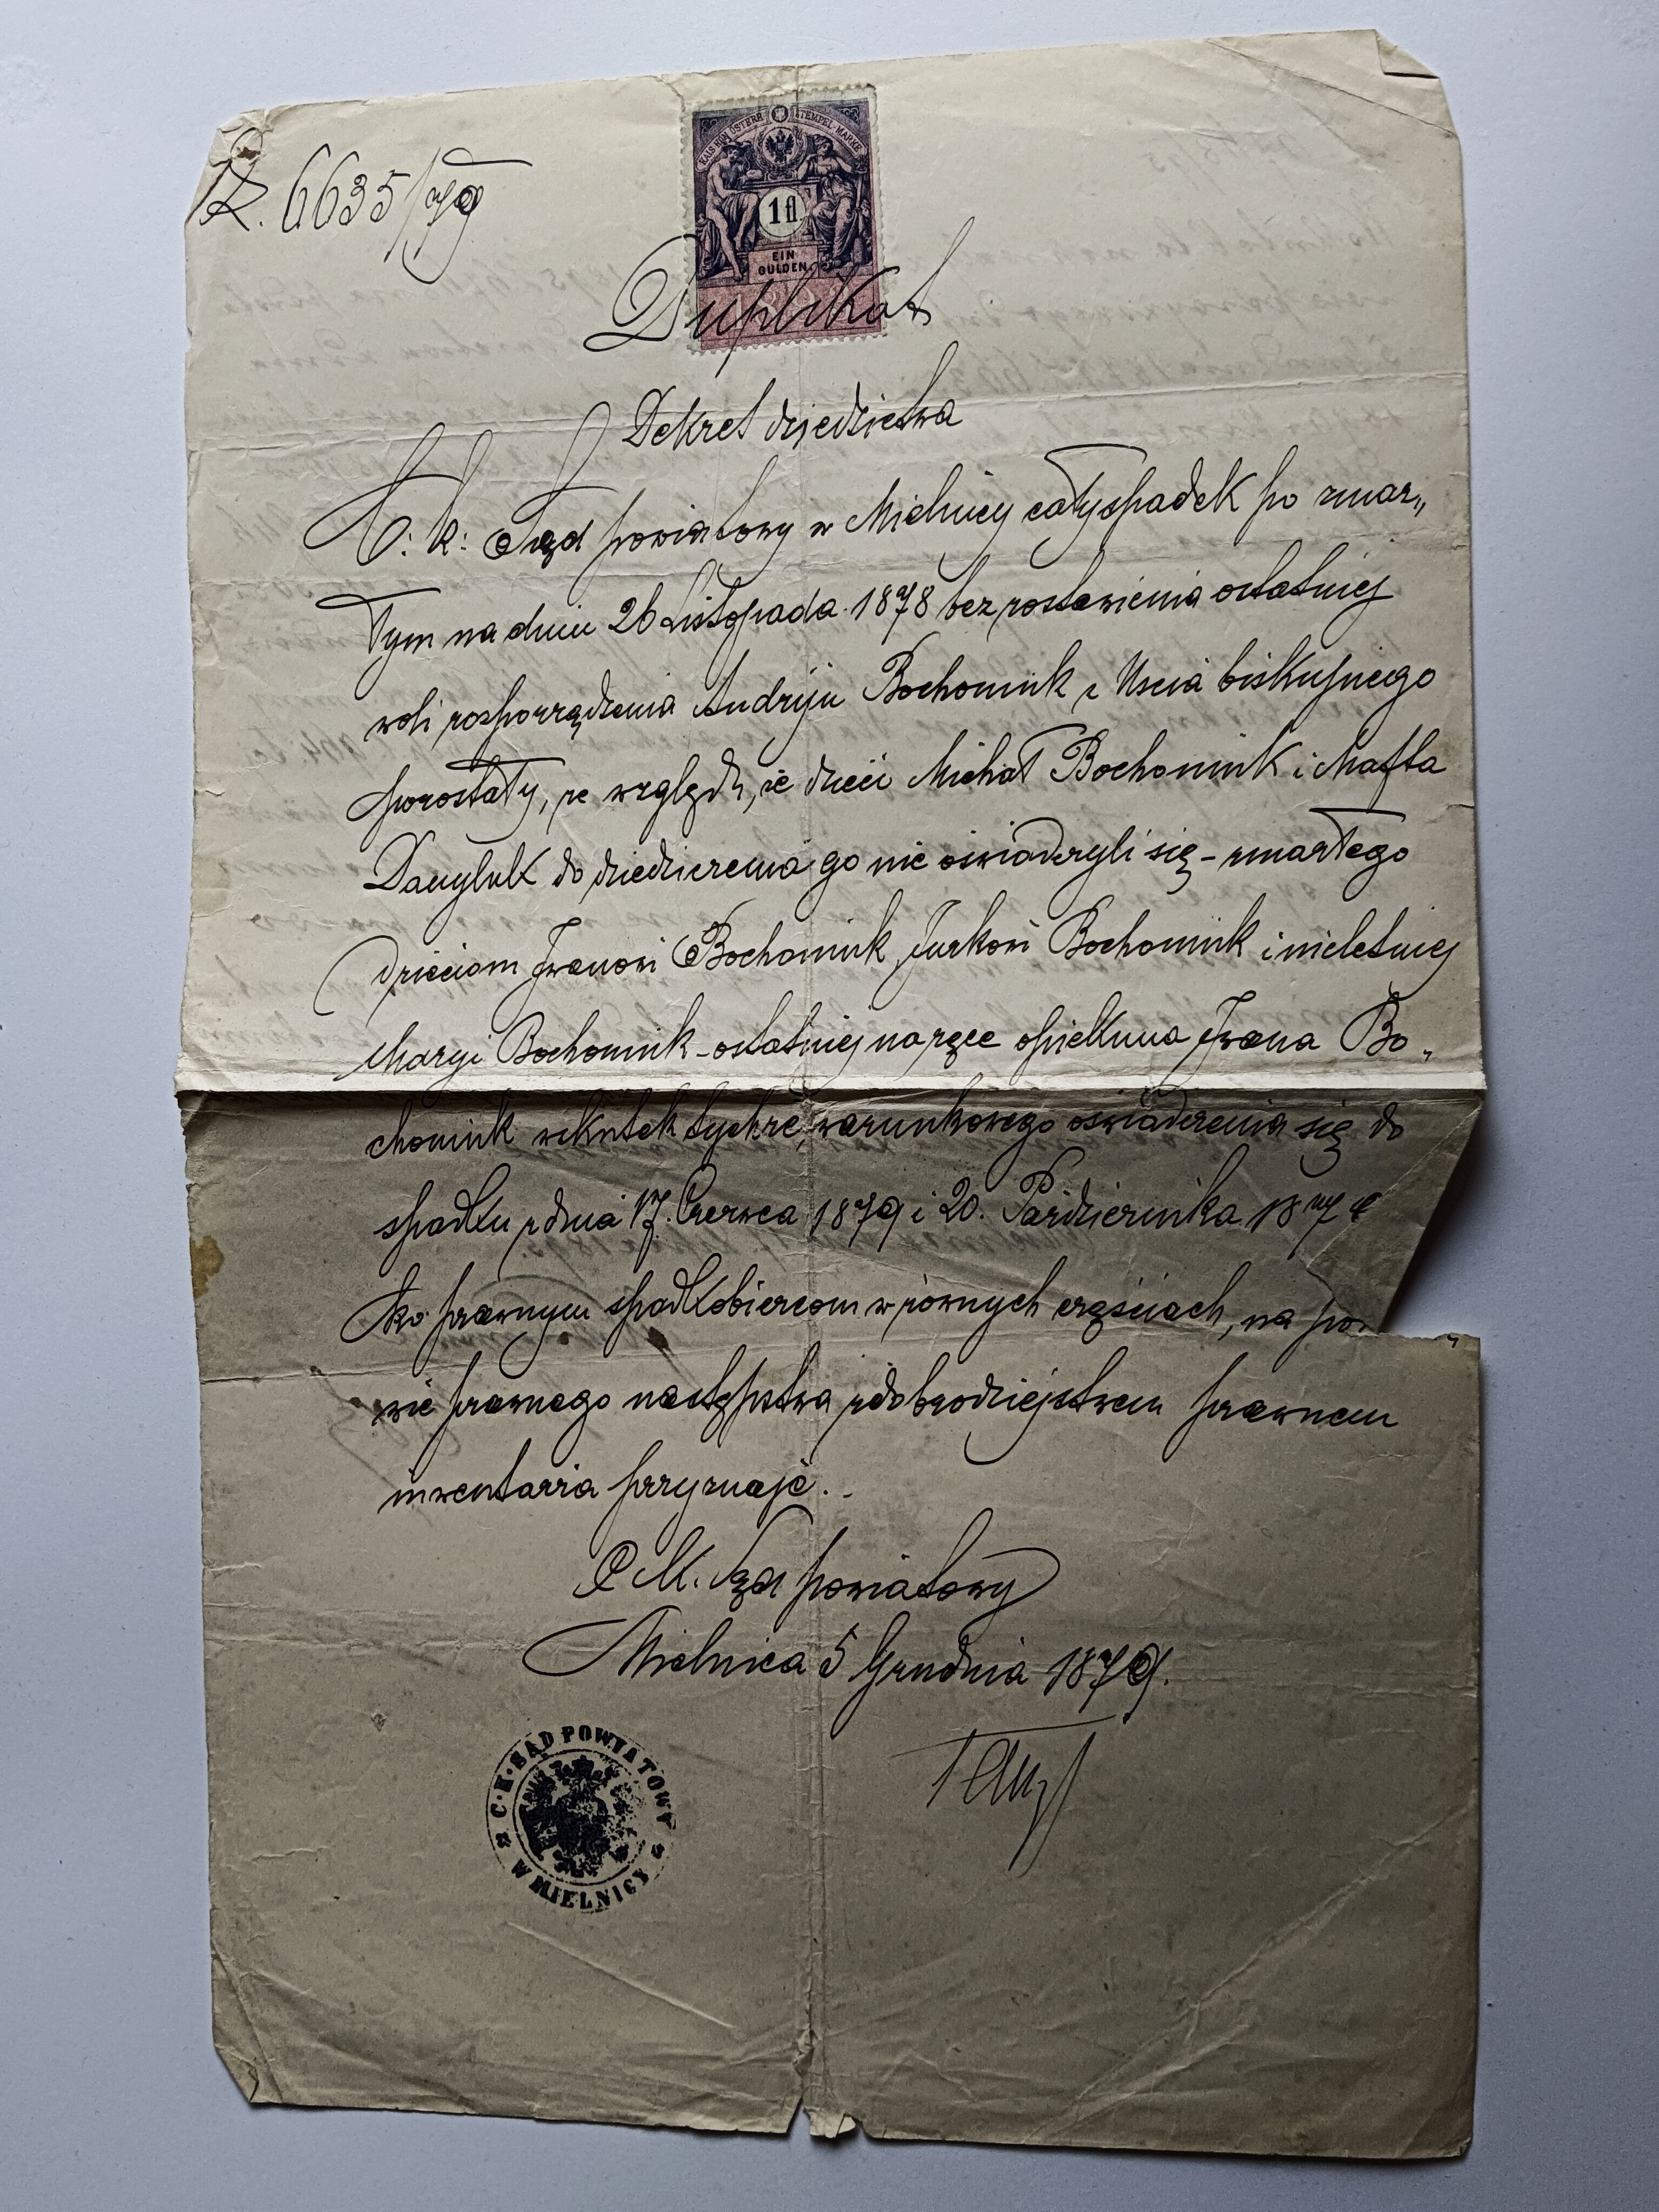 L. 6635/79
KAIS. KÖN. ÖSTERR. STEMPEL-MARKE
1 fl.
EIN
GULDEN
Duplikat
Dekret dziedzictwa
C: k: Sąd powiatowy w Mielnicy cały spadek po zmar„
łym na dniu 26 Listopada 1878 bez zostawienia ostatniej
woli rozporządzenia Andriju Bochoniuk z Uścia biskupiego
pozostały, ze względu, że dzieci Michał Bochoniuk i Mafta
Danyluk do dziedziczenia go nie oświadczyli się - zmarłego
dzieciom Iwanowi Bochoniuk Jurkowi Bochoniuk i nieletniej
Maryi Bochoniuk - ostatniej na ręce opiekuna Iwana Bo„
choniuk wskutek tychże, warunkowego oświadczenia się do
spadku z dnia 17. Czerwca 1879 i 20. Października 1879
ko prawnym spadkobiercom w równych częściach, na po
wie prawnego następstwa z dobrodziejstwem prawnem
inwentarza przyznaje.
C. K. Sąd powiatowy
Mielnica 5 Grudnia 1879.
C. K. SĄD POWIATOWY
W MIELNICY